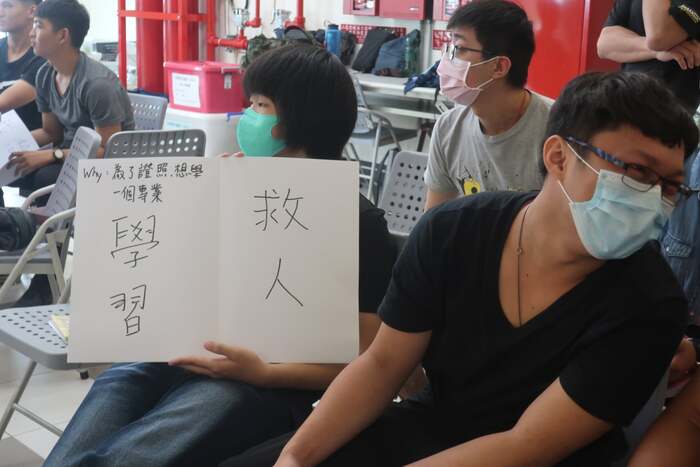 Why：為了證照,想學
一個專業
學習
救人